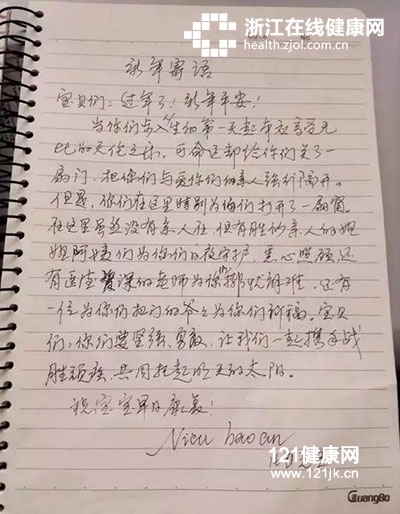 浙江在线健康网
health.zjol.com.cn
新年寄语
宝贝们：过年了！新年平安！
当你们步入人生的第一天起本应享受无
比的天伦之乐，可命运却给你们关了一
扇门，把你们与爱你们的亲人强行隔开。
但是，你们在这里特别为你们打开了一扇窗
在这里虽并没有亲人在，但有胜似亲人的姐
姐阿姨们为你们日夜守护，悉心照顾还
有医德 的老师为你们排忧解难，还有
一位为你们把门的爷爷为你们祈福。宝贝
们：你们要坚强、勇敢，让我们一起携手战
胜顽疾，共同托起明天的太阳。
祝宝宝早日康复！
Nieu baoan
121健康网
www.121jk.cn
GuangBo